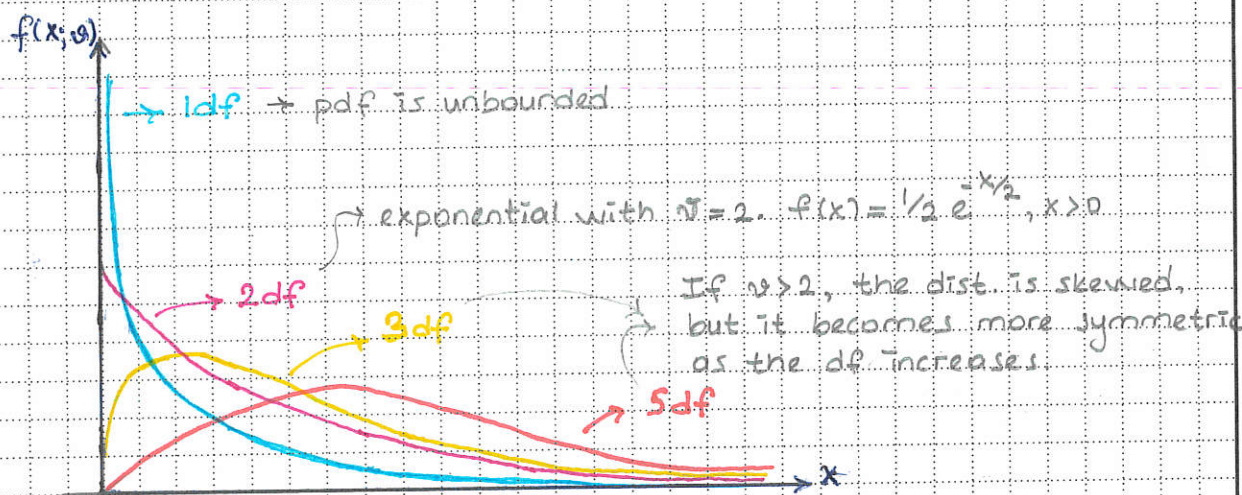 f(x; ν)
→ 1df → pdf is unbounded
→ exponential with ν = 2. f(x) = 1/2 e^-x/2, x>0
→ 2df
If ν > 2, the dist. is skewed,
→ 3df
but it becomes more symmetric
as the df increases.
→ 5df
x